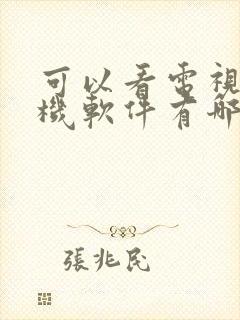 可以看電視
機軟件有哪
張兆民